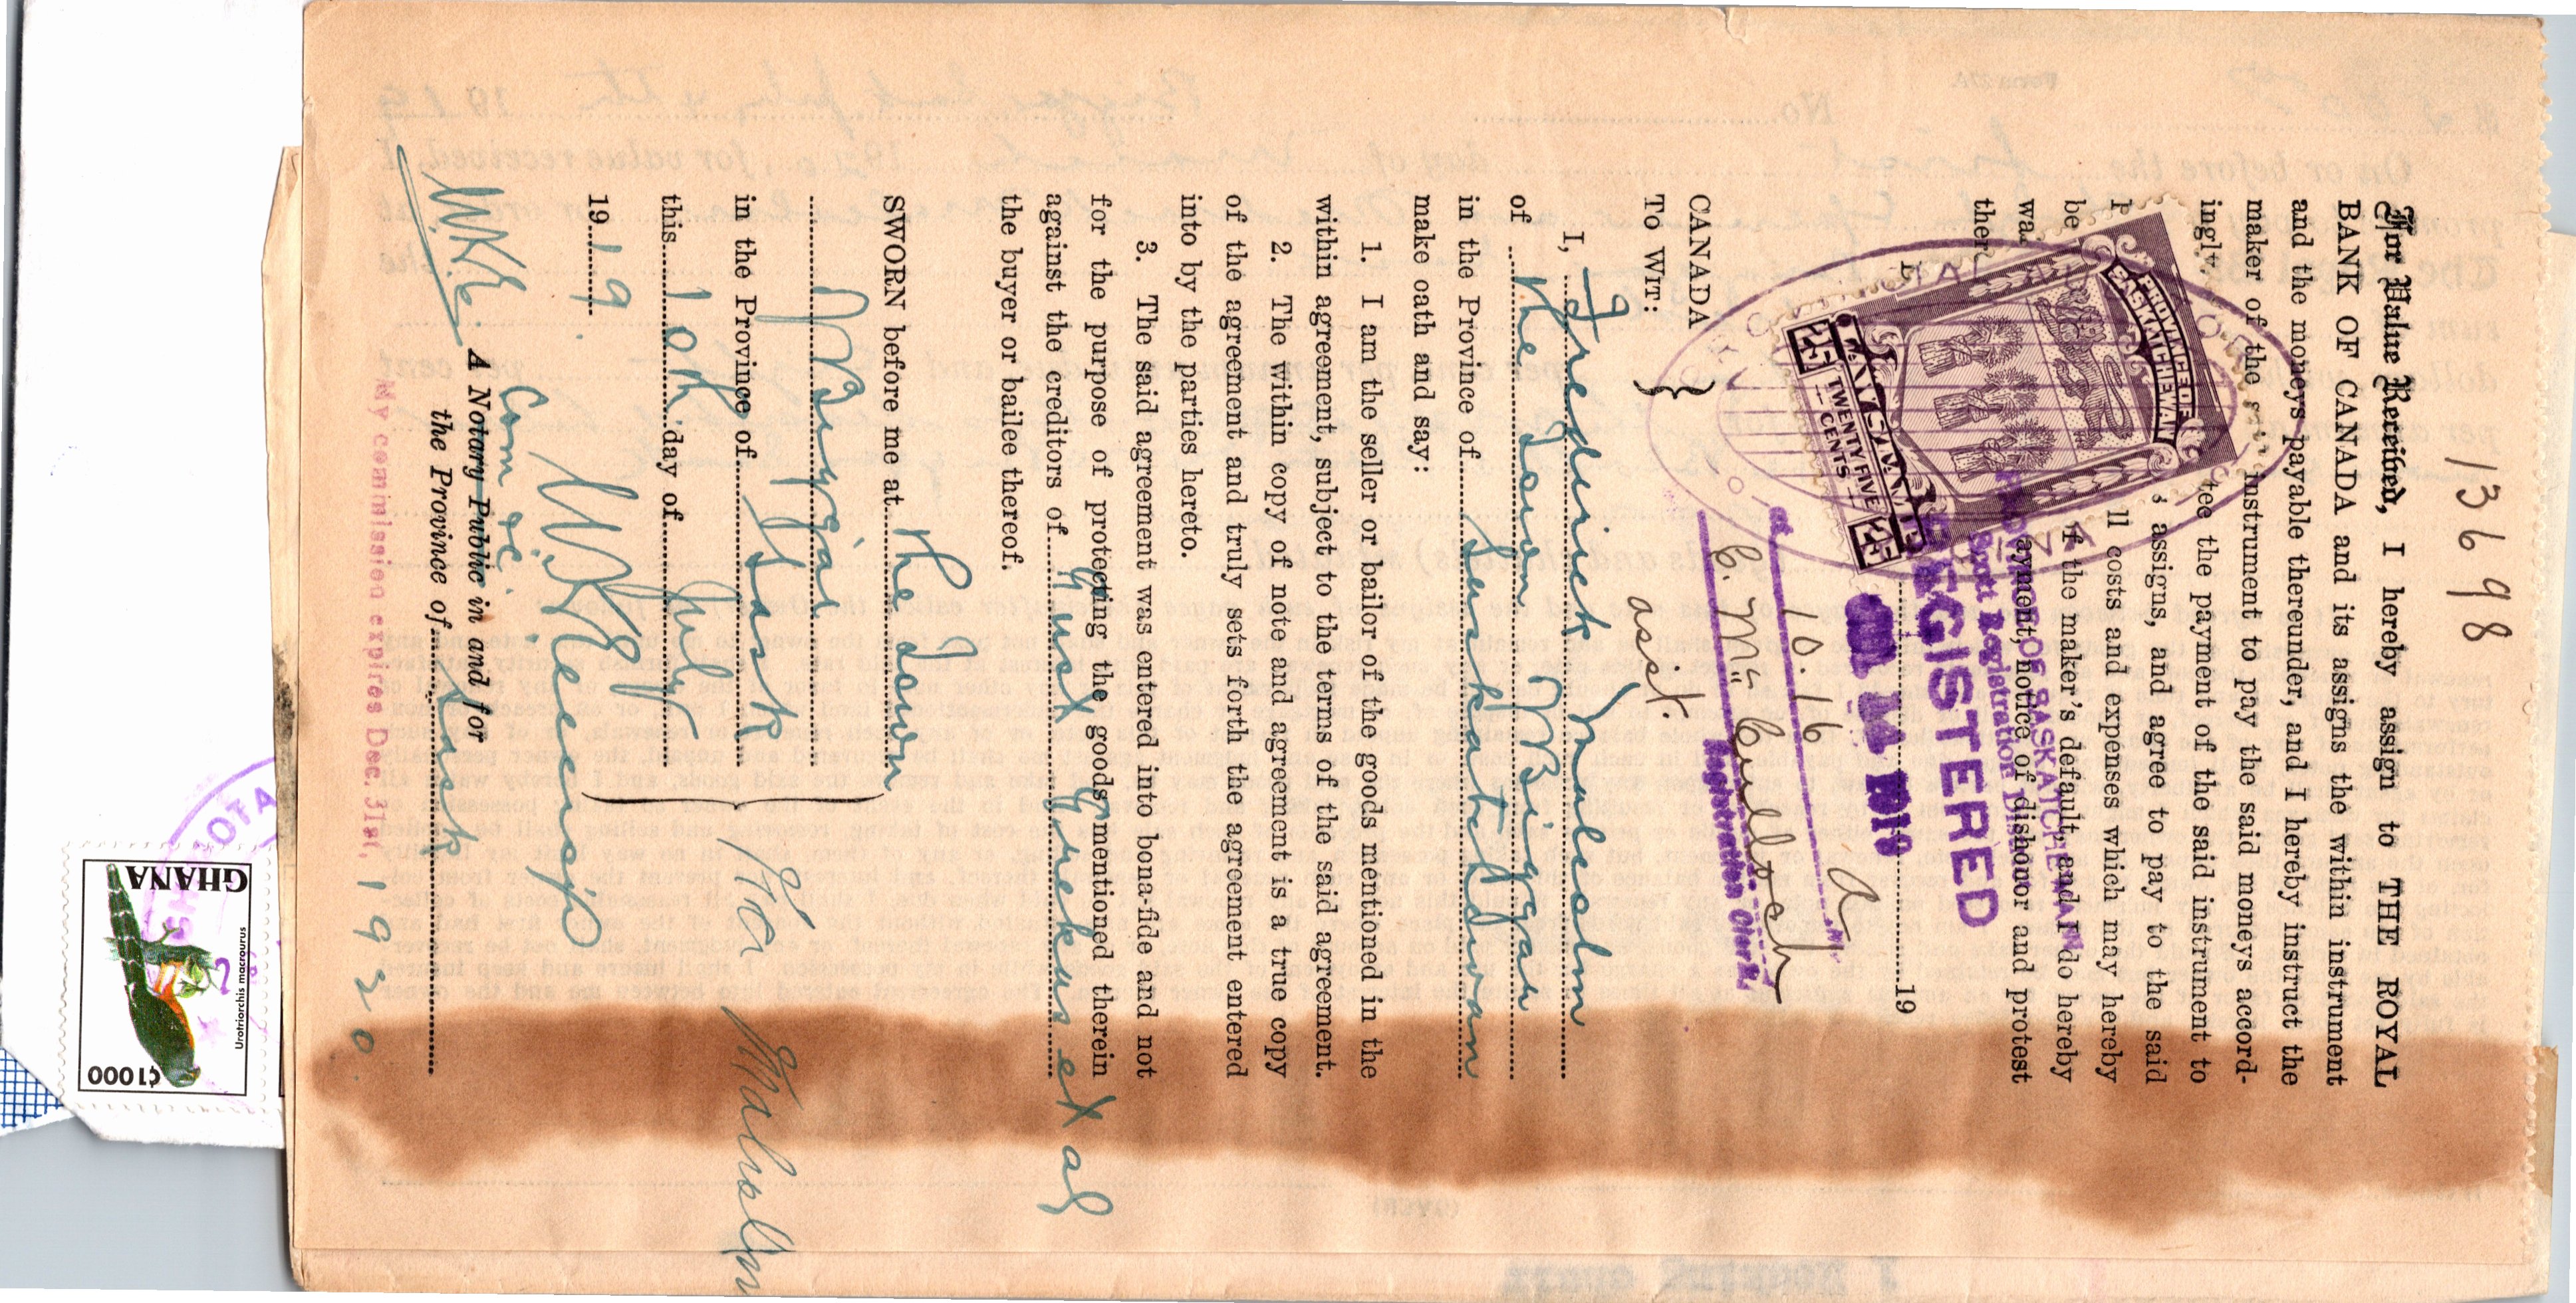 13698
For Value Received, I hereby assign to THE ROYAL
BANK OF CANADA and its assigns the within instrument
and the moneys payable thereunder, and I hereby instruct the
maker of the instrument to pay the said moneys accord-
ingly. tee the payment of the said instrument to
assigns, and agree to pay to the said
ll costs and expenses which may hereby
be f the maker's default, and I do hereby
wai ayment, notice of dishonor and protest
ther
PROVINCE OF SASKATCHEWAN
REGISTERED
19
PROVINCE OF
SASKATCHEWAN
LAW STAMP
25 TWENTY FIVE 25
CENTS
at 10.16 a M.
C. McCulloch
Registration Clerk.
asist.
CANADA }
To Wit:
I, Fredrick Malcolm
of the Town Biggar
in the Province of Saskatchewan
make oath and say:
1. I am the seller or bailor of the goods mentioned in the
within agreement, subject to the terms of the said agreement.
2. The within copy of note and agreement is a true copy
of the agreement and truly sets forth the agreement entered
into by the parties hereto.
3. The said agreement was entered into bona-fide and not
for the purpose of protecting the goods mentioned therein
against the creditors of Gust Grekus et al
the buyer or bailee thereof.
SWORN before me at the Town
of Biggar
in the Province of Sask
this 10th day of July
1919
Malcolm
Com etc.
A Notary Public in and for
the Province of Sask
My commission expires Dec. 31st, 1920.
GHANA
Urotriorchis macrourus
₵1000